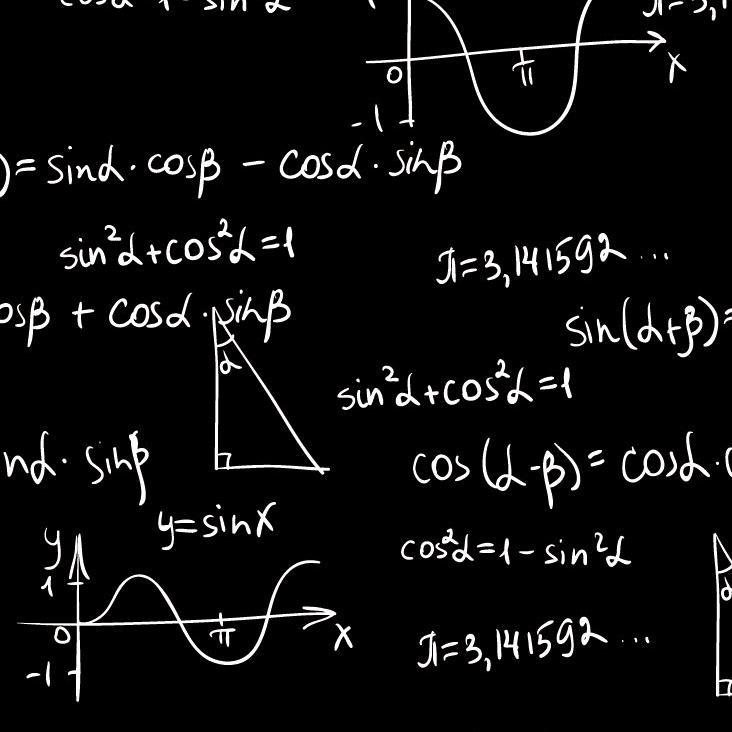 π=3,1
0
π
x
-1
)=sinα·cosβ - cosα·sinβ
sin²α+cos²α=1
π=3,141592...
osβ + cosα·sinβ
sin(α+β)=
α
sin²α+cos²α=1
nα·sinβ
cos(α-β)=cosα·
y=sinx
y
1
0
π
x
-1
cos²α=1-sin²α
α
π=3,141592...